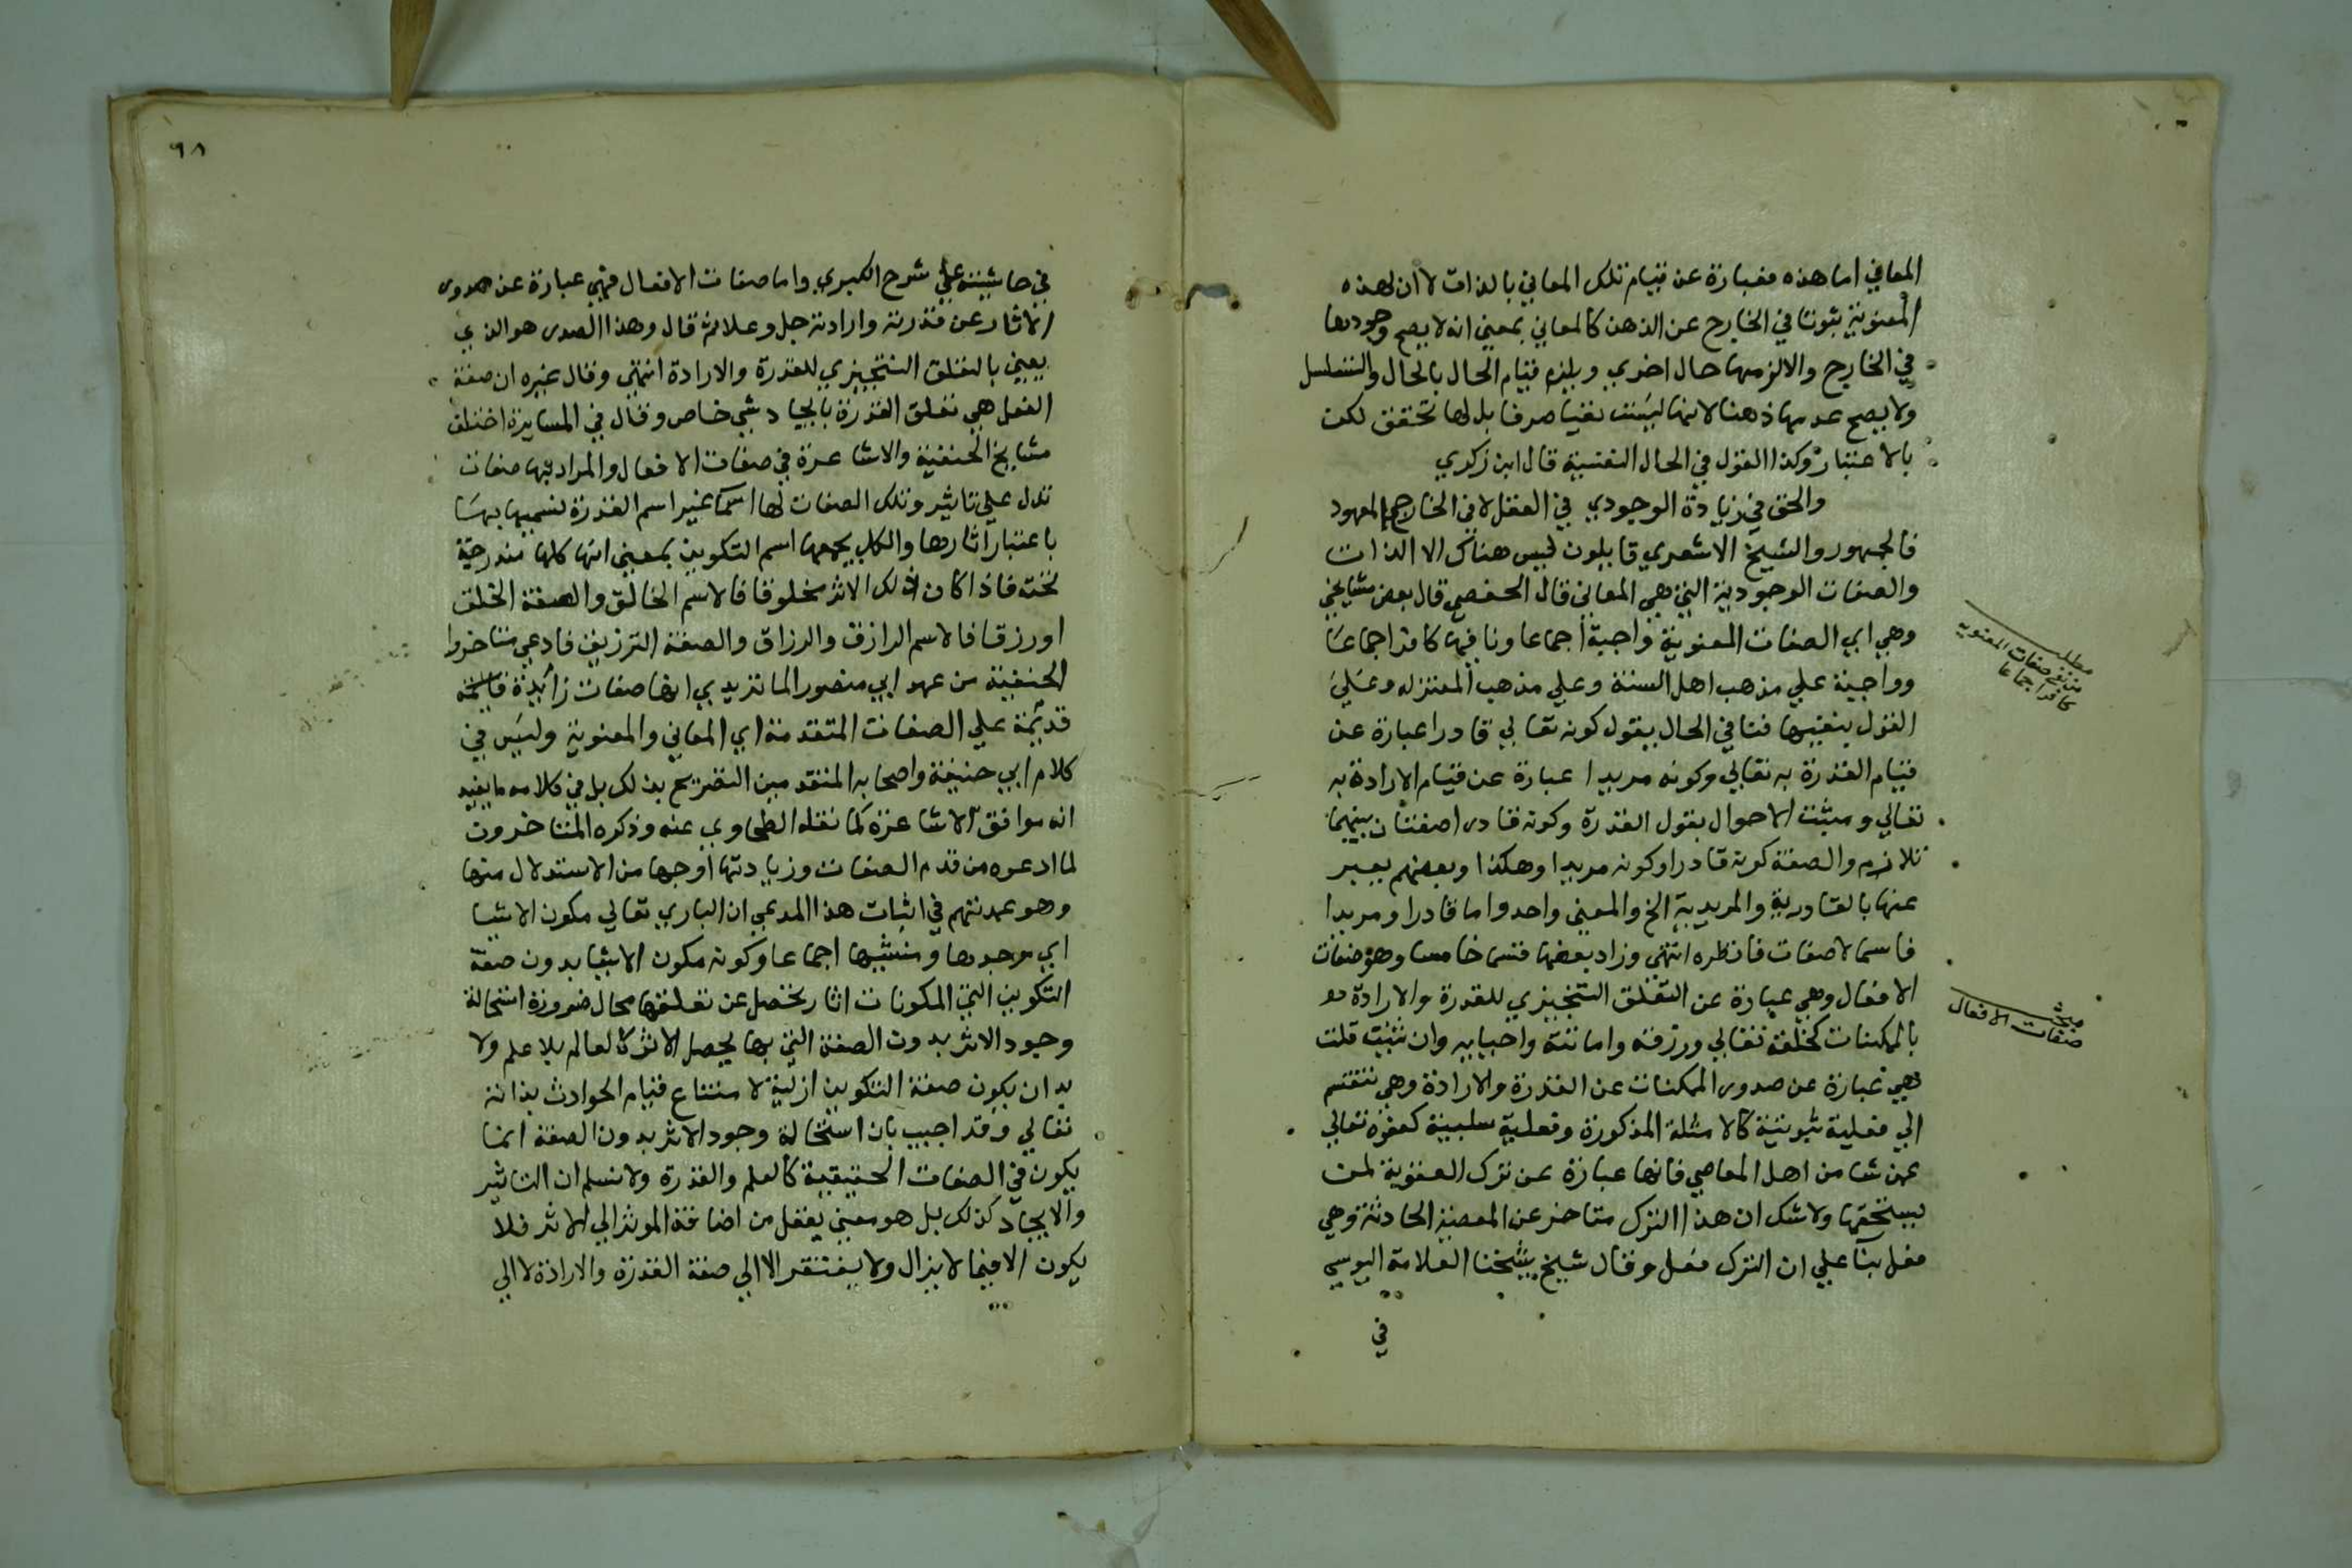 المعاني اما هذه فعبارة عن قيام تلك المعاني بالذات لا ان لهذه
المعنوية ثبوتا في الخارج عن الذهن كالمعاني بمعنى انه لا يصح وجودها
في الخارج والا لزمها حال اخري ويلزم قيام الحال بالحال والتسلسل
ولا يصح عدمها ذهنا لانها ليست نفيا صرفا بل لها تحقق لكن
بالاعتبار وكذا القول في الحال النفسية قال ابن زكري
والحق في زيادة الوجودي في العقل لا في الخارج المعهود
فالجمهور والشيخ الاشعري قايلون ليس هناك الا الذات
والصفات الوجودية التي هي المعاني قال الحفصي قال بعض مشايخي
وهي اي الصفات المعنوية واجبة اجماعا ونافيها كافر اجماعا
مطلب
من نفى صفات المعنوية
كافر اجماعا
وواجبة علي مذهب اهل السنة وعلي مذهب المعتزله وعلي
القول بنفيها فنافي الحال يقول كونه تعالي قادرا عبارة عن
قيام القدرة به تعالي وكونه مريدا عبارة عن قيام الارادة به
تعالي ومثبت الاحوال يقول القدرة وكونه قادرا صفتان بينهما
تلازم والصفة كونه قادرا وكونه مريدا وهكذا وبعضهم يعبر
عنها بالقادرية والمريدية الخ والمعنى واحد واما قادرا ومريدا
فاسما لا صفات فانظره انتهى وزاد بعضها قسما خامسا وهو صفات
الافعال وهي عبارة عن التعلق التنجيزي للقدرة والارادة
مبحث
صفات الافعال
بالممكنات كخلقه تعالي ورزقه واماتته واحيايه وان شئت قلت
فهي عبارة عن صدور الممكنات عن القدرة والارادة وهي تنقسم
الي فعلية ثبوتية كالامثلة المذكورة وفعلية سلبية كعفوه تعالي
عمن شا من اهل المعاصي فانها عبارة عن ترك العقوبة لمن
يستحقها ولا شك ان هذا الترك متاخر عن المعصية الحادثة وهي
فعل بنا علي ان الترك فعل وقال شيخ شيخنا العلامة اليوسي
في
٩٨
في حاشيته علي شرح الكبري واما صفات الافعال فهي عبارة عن صدور
الاثار عن قدرته وارادته جل وعلا ثم قال وهذا الصدور هو الذي
يعني بالتعلق التنجيزي للقدرة والارادة انتهى وقال غيره ان صفة
الفعل هي تعلق القدرة بايجاد شي خاص وقال في المسايرة اختلف
مشايخ الحنفية والاشاعرة في صفات الافعال والمراد بها صفات
تدل علي تاثير وتلك الصفات لها اسما غير اسم القدرة
باعتبار اثارها والكل يجمعها اسم التكوين بمعنى انها كلها مندرجة
تحته فاذا كان ذلك الاثر مخلوقا فالاسم الخالق والصفة الخلق
او رزقا فالاسم الرازق والرزاق والصفة الترزيق فادعي متاخروا
الحنفية من عهد ابي منصور الماتريدي انها صفات زائدة قائمة
قديمة علي الصفات المتقدمة اي المعاني والمعنوية وليس في
كلام ابي حنيفة واصحابه المتقدمين التصريح بذلك بل في كلامه ما يفيد
انه موافق الاشاعرة كما نقله الطحاوي عنه وذكره المتاخرون
لما ادعوه من قدم الصفات وزيادتها اوجها من الاستدلال منها
وهو عمدتهم في اثبات هذا المدعي ان الباري تعالي مكون الاشيا
اي موجدها ومنشيها اجماعا وكونه مكون الاشيا بدون صفة
التكوين التي المكونات اثار تحصل عن تعلقها محال ضرورة استحالة
وجود الاثر بدون الصفة التي بها يحصل الاثر كالعالم بلا علم ولا
بد ان يكون صفة التكوين ازلية لامتناع قيام الحوادث بذاته
تعالي وقد اجيب بان استحالة وجود الاثر بدون الصفة انما
يكون في الصفات الحقيقية كالعلم والقدرة ولا نسلم ان التاثير
والايجاد كذلك بل هو معنى يعقل من اضافة الموثر الي الاثر فلا
يكون الا فيما لا يزال ولا يفتقر الا الي صفة القدرة والارادة لا الي